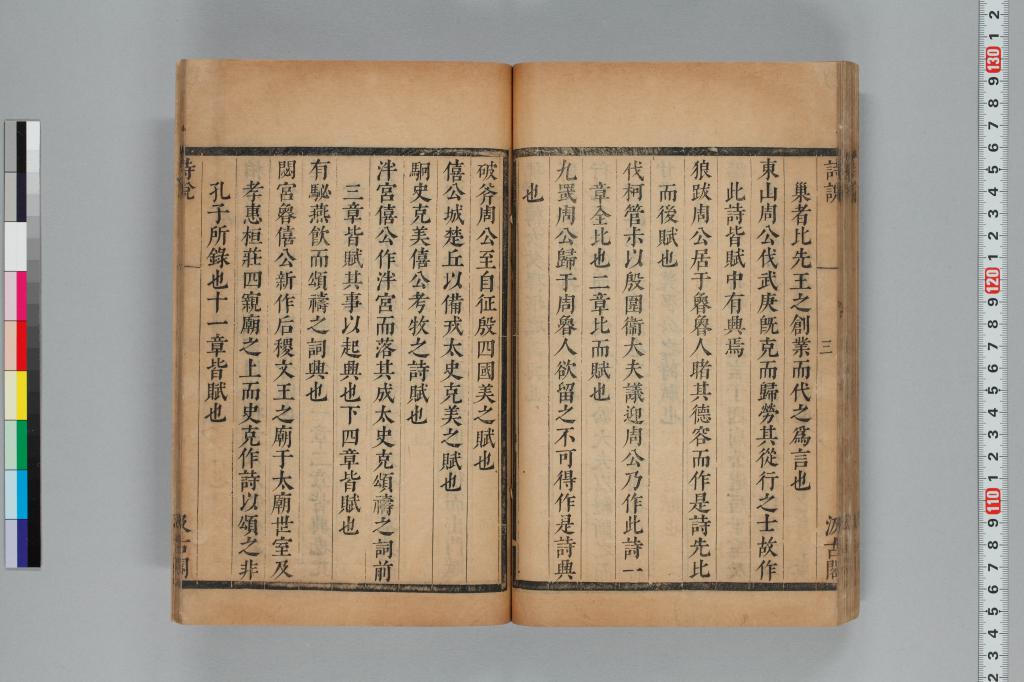 詩說
三
汲古閣
巢者比先王之創業而代之爲言也
東山周公伐武庚旣克而歸勞其從行之士故作
此詩皆賦中有興焉
狼跋周公居于魯魯人睹其德容而作是詩先比
而後賦也
伐柯管尗以殷圍衞大夫議迎周公乃作此詩一
章全比也二章比而賦也
九罭周公歸于周魯人欲留之不可得作是詩興
也
破斧周公至自征殷四國美之賦也
僖公城楚丘以備戎太史克美之賦也
駉史克美僖公考牧之詩賦也
泮宮僖公作泮宮而落其成太史克頌禱之詞前
三章皆賦其事以起興也下四章皆賦也
有駜燕飮而頌禱之詞興也
閟宮魯僖公新作后稷文王之廟于太廟世室及
孝惠桓莊四寢廟之上而史克作詩以頌之非
孔子所錄也十一章皆賦也
詩說
汲古閣
12
130
9
8
7
6
5
4
3
2
1
120
9
8
7
6
5
4
3
2
1
110
9
8
7
6
5
4
3
2